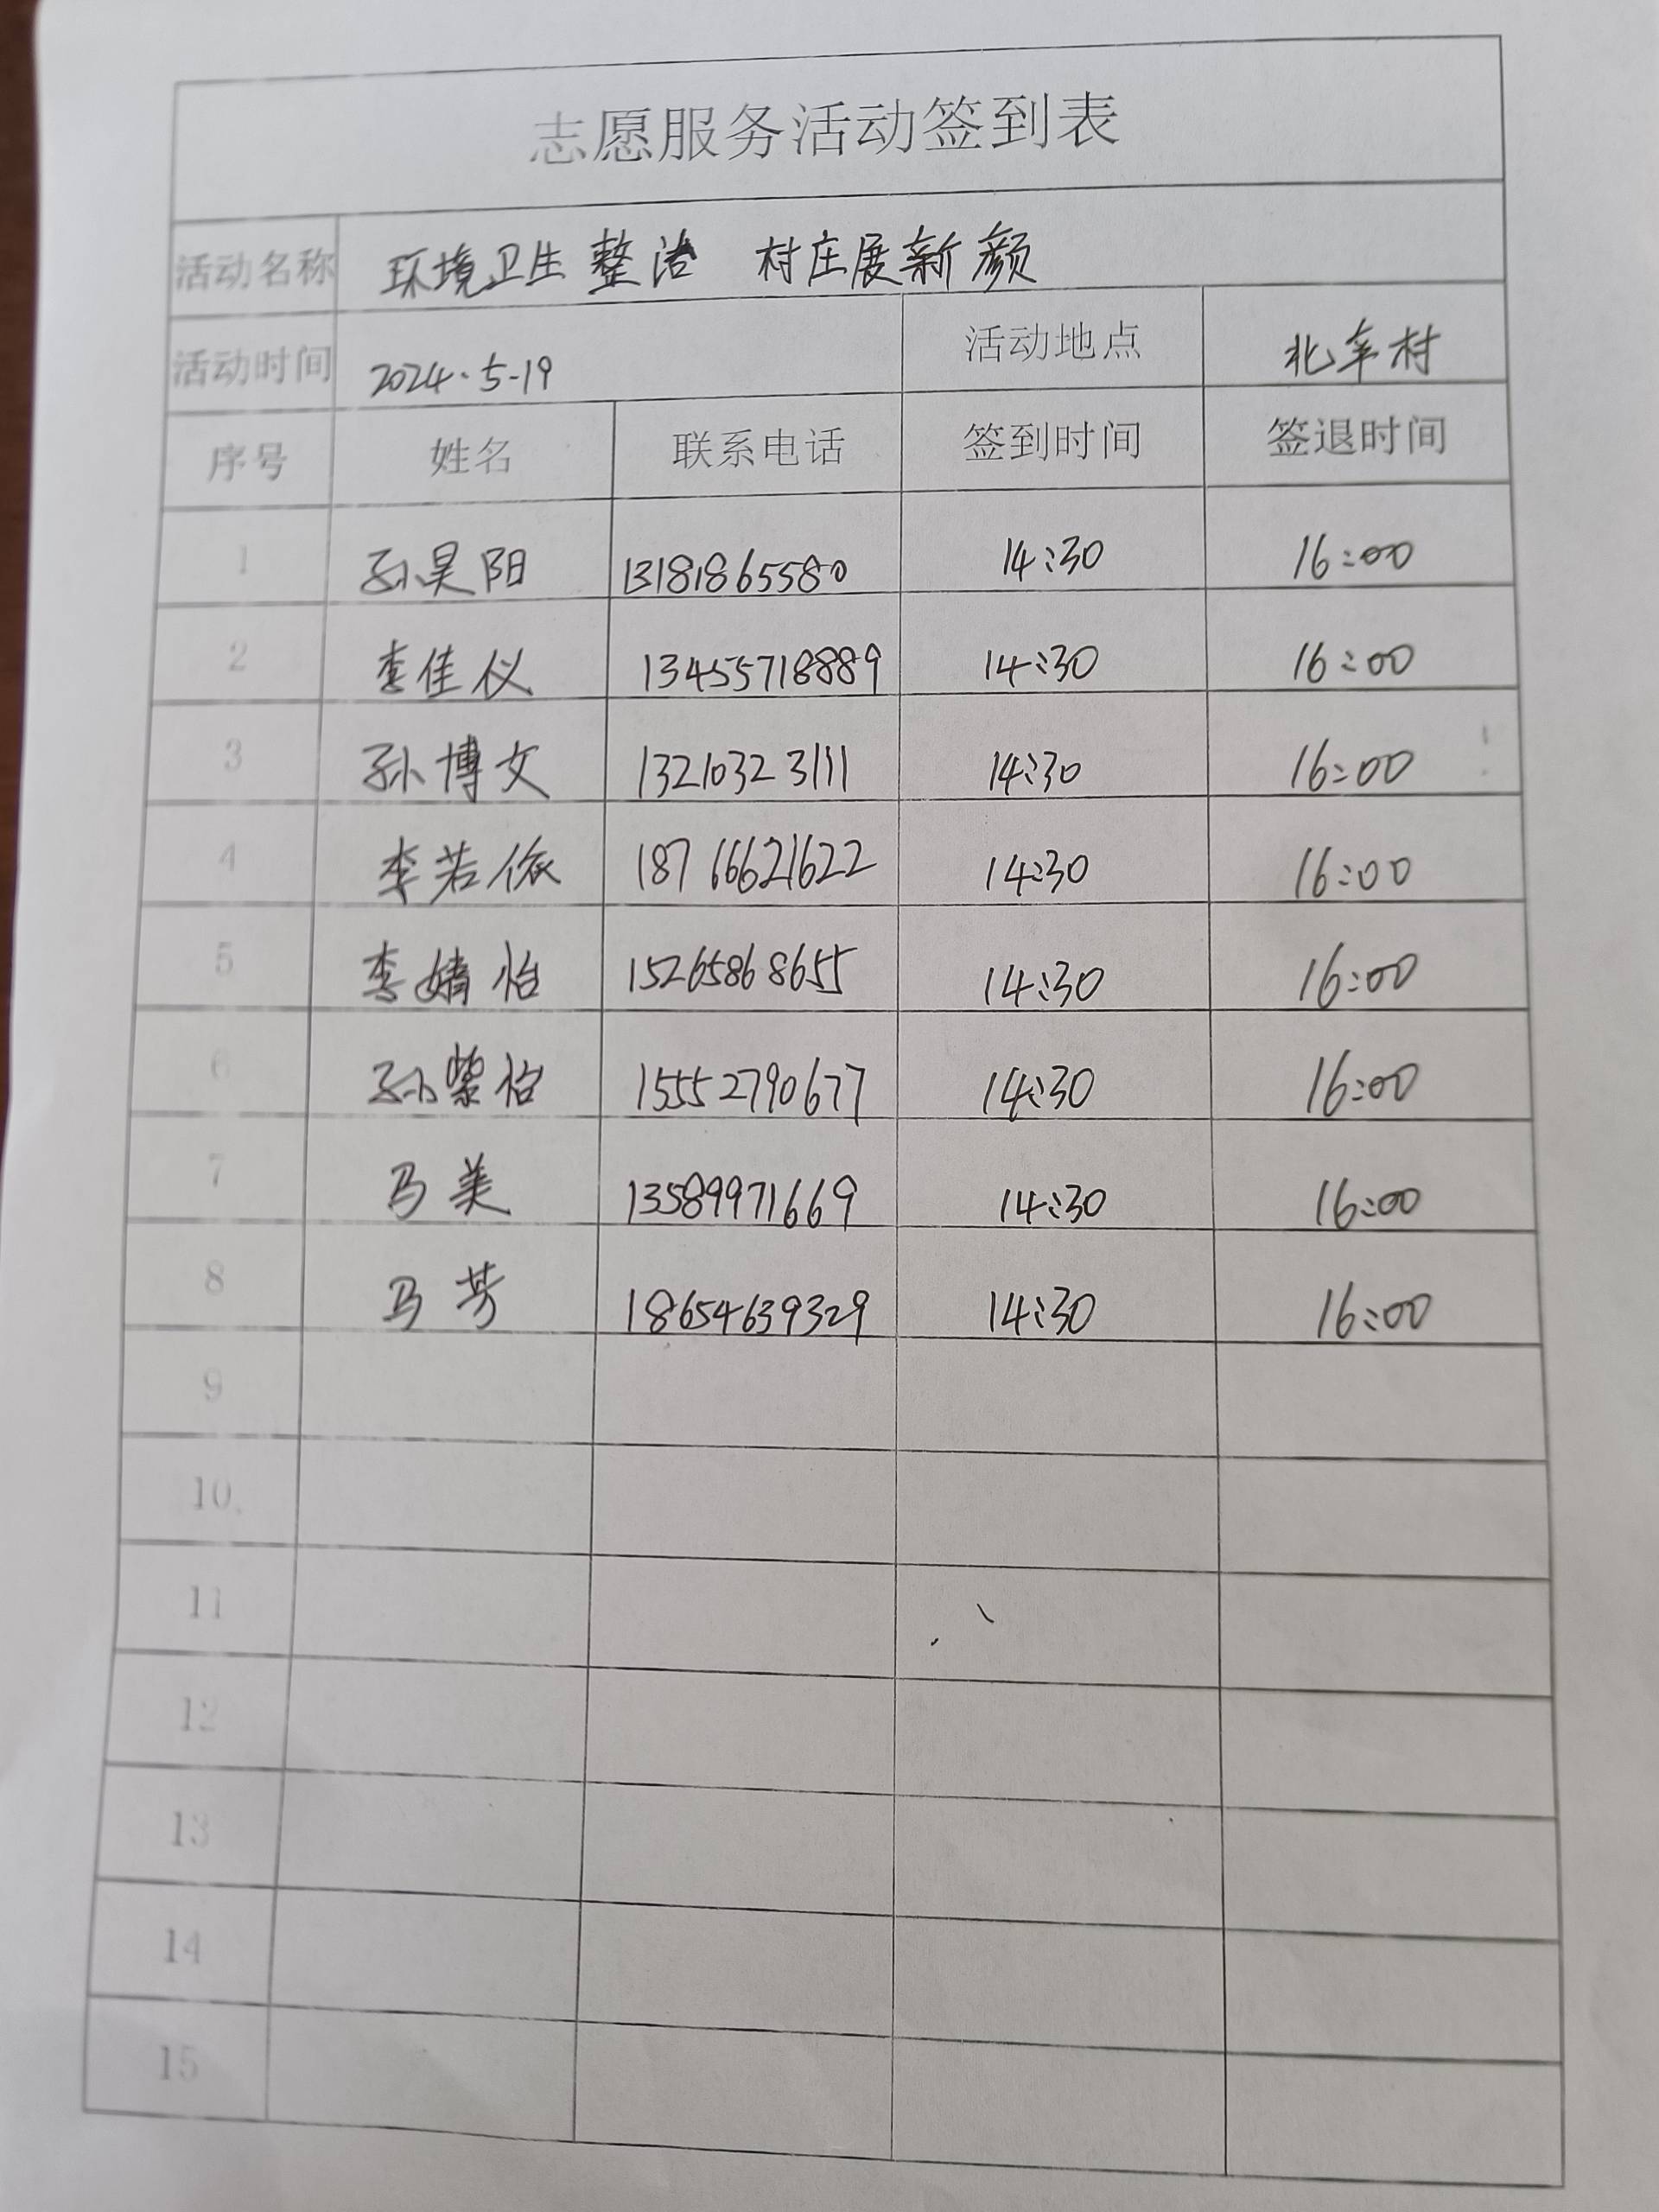 志愿服务活动签到表
活动名称 环境卫生整治 村庄展新颜
活动时间 2024.5-19 活动地点 北车村
序号 姓名 联系电话 签到时间 签退时间
1 孙昊阳 13181865580 14:30 16:00
2 李佳仪 13455718889 14:30 16:00
3 孙博文 13210323111 14:30 16:00
4 李若依 18766621622 14:30 16:00
5 李婧怡 15265868655 14:30 16:00
6 孙紫怡 15552790677 14:30 16:00
7 马美 13589971669 14:30 16:00
8 马芳 18654639329 14:30 16:00
9
10
11
12
13
14
15